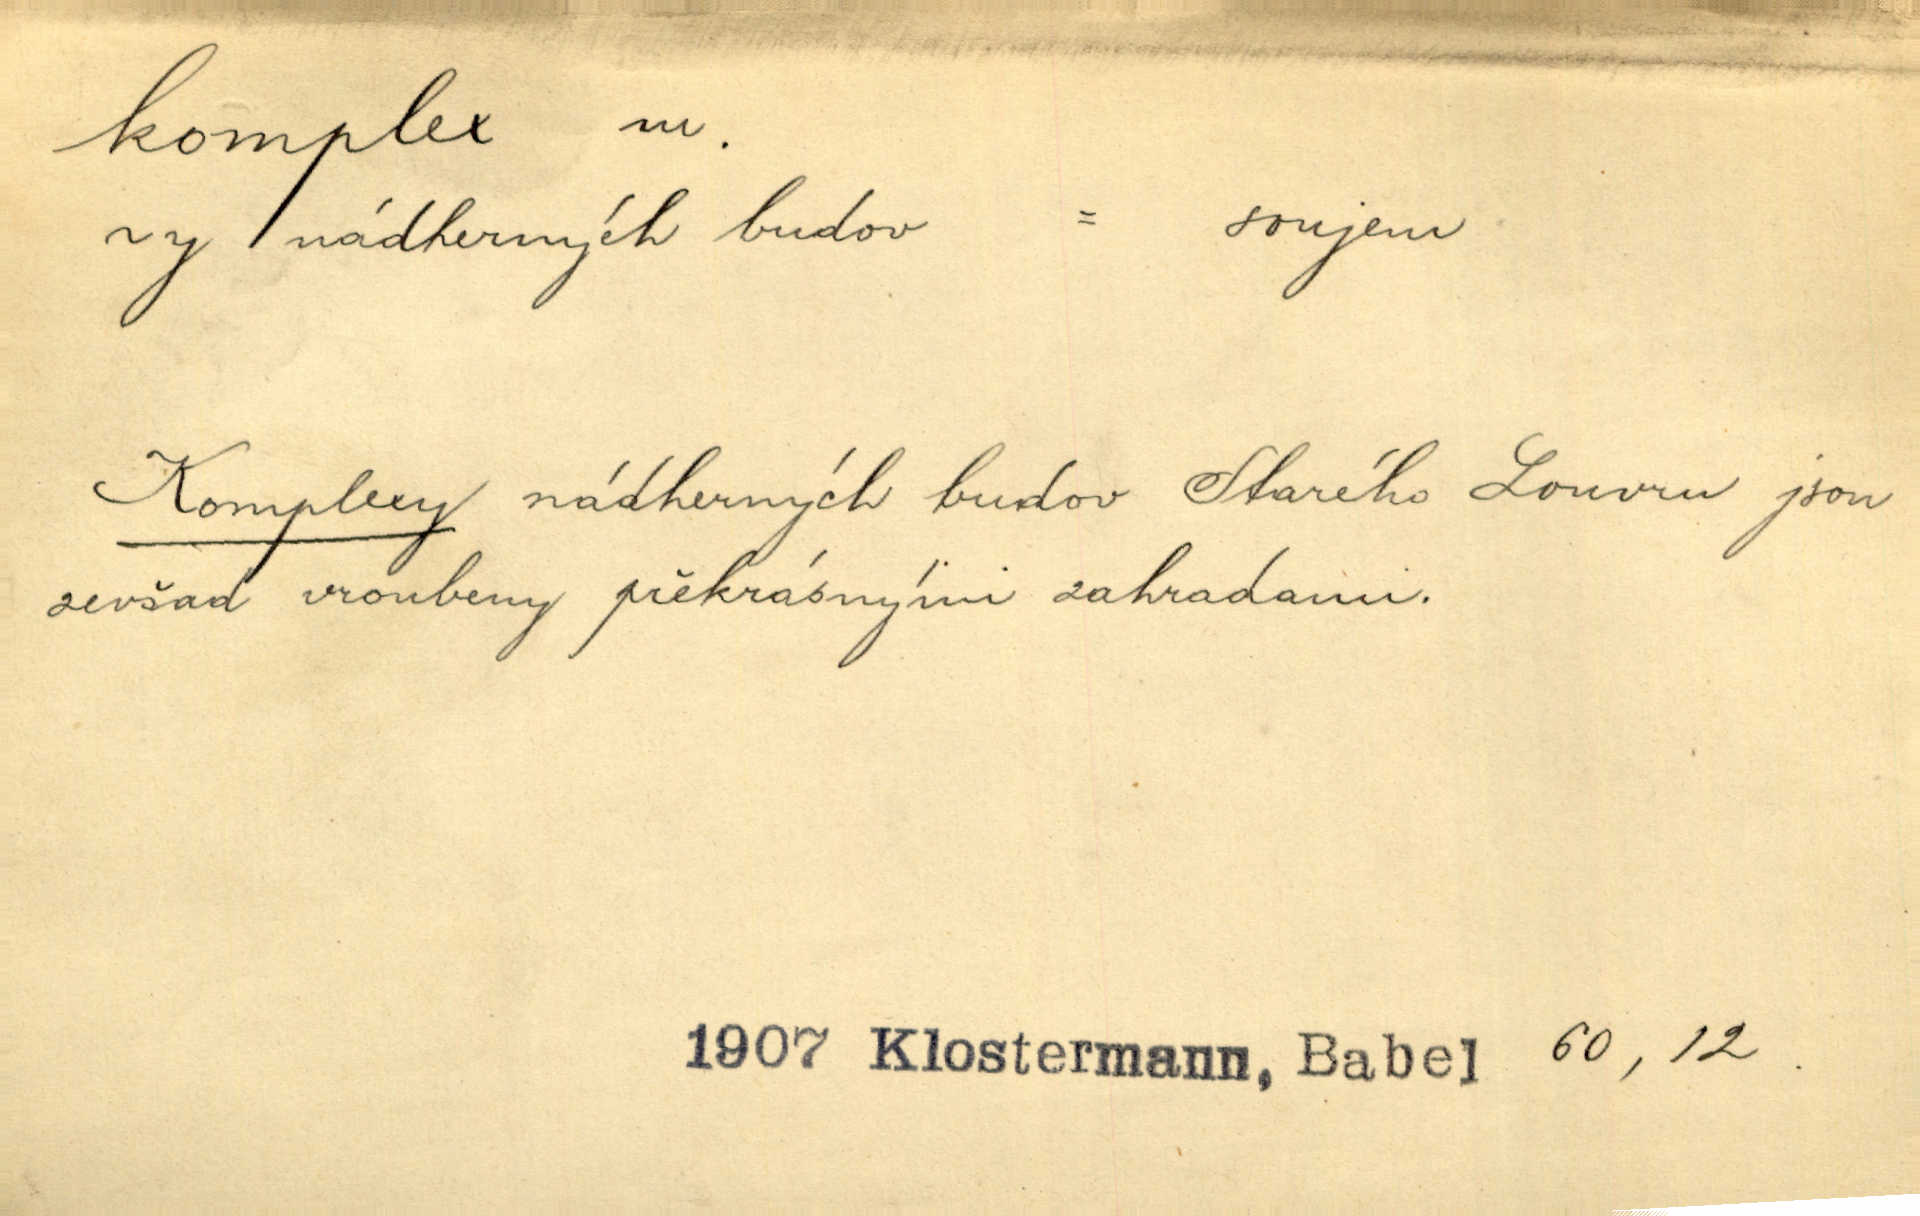 komplex m.
~y nádherných budov = soujem
Komplexy nádherných budov Starého Louvru jsou
zevšad vroubeny překrásnými zahradami.
1907 Klostermann, Babel 60, 12